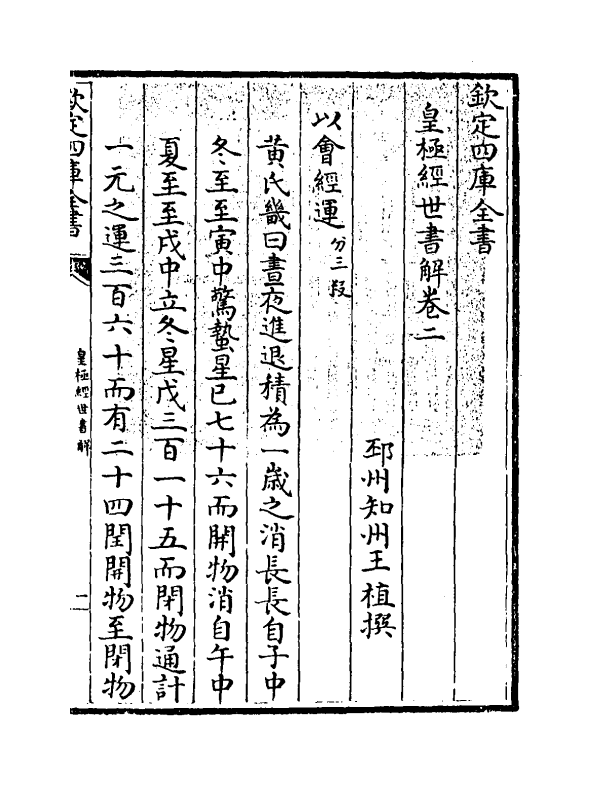 欽定四庫全書
皇極經世書解卷二
邳州知州王植撰
以會經運分三段
黄氏畿曰晝夜進退積為一歲之消長長自子中
冬至至寅中驚蟄星已七十六而開物消自午中
夏至至戌中立冬星戊三百一十五而閉物通計
一元之運三百六十而有二十四閏開物至閉物
欽定四庫全書
皇極經世書解
二